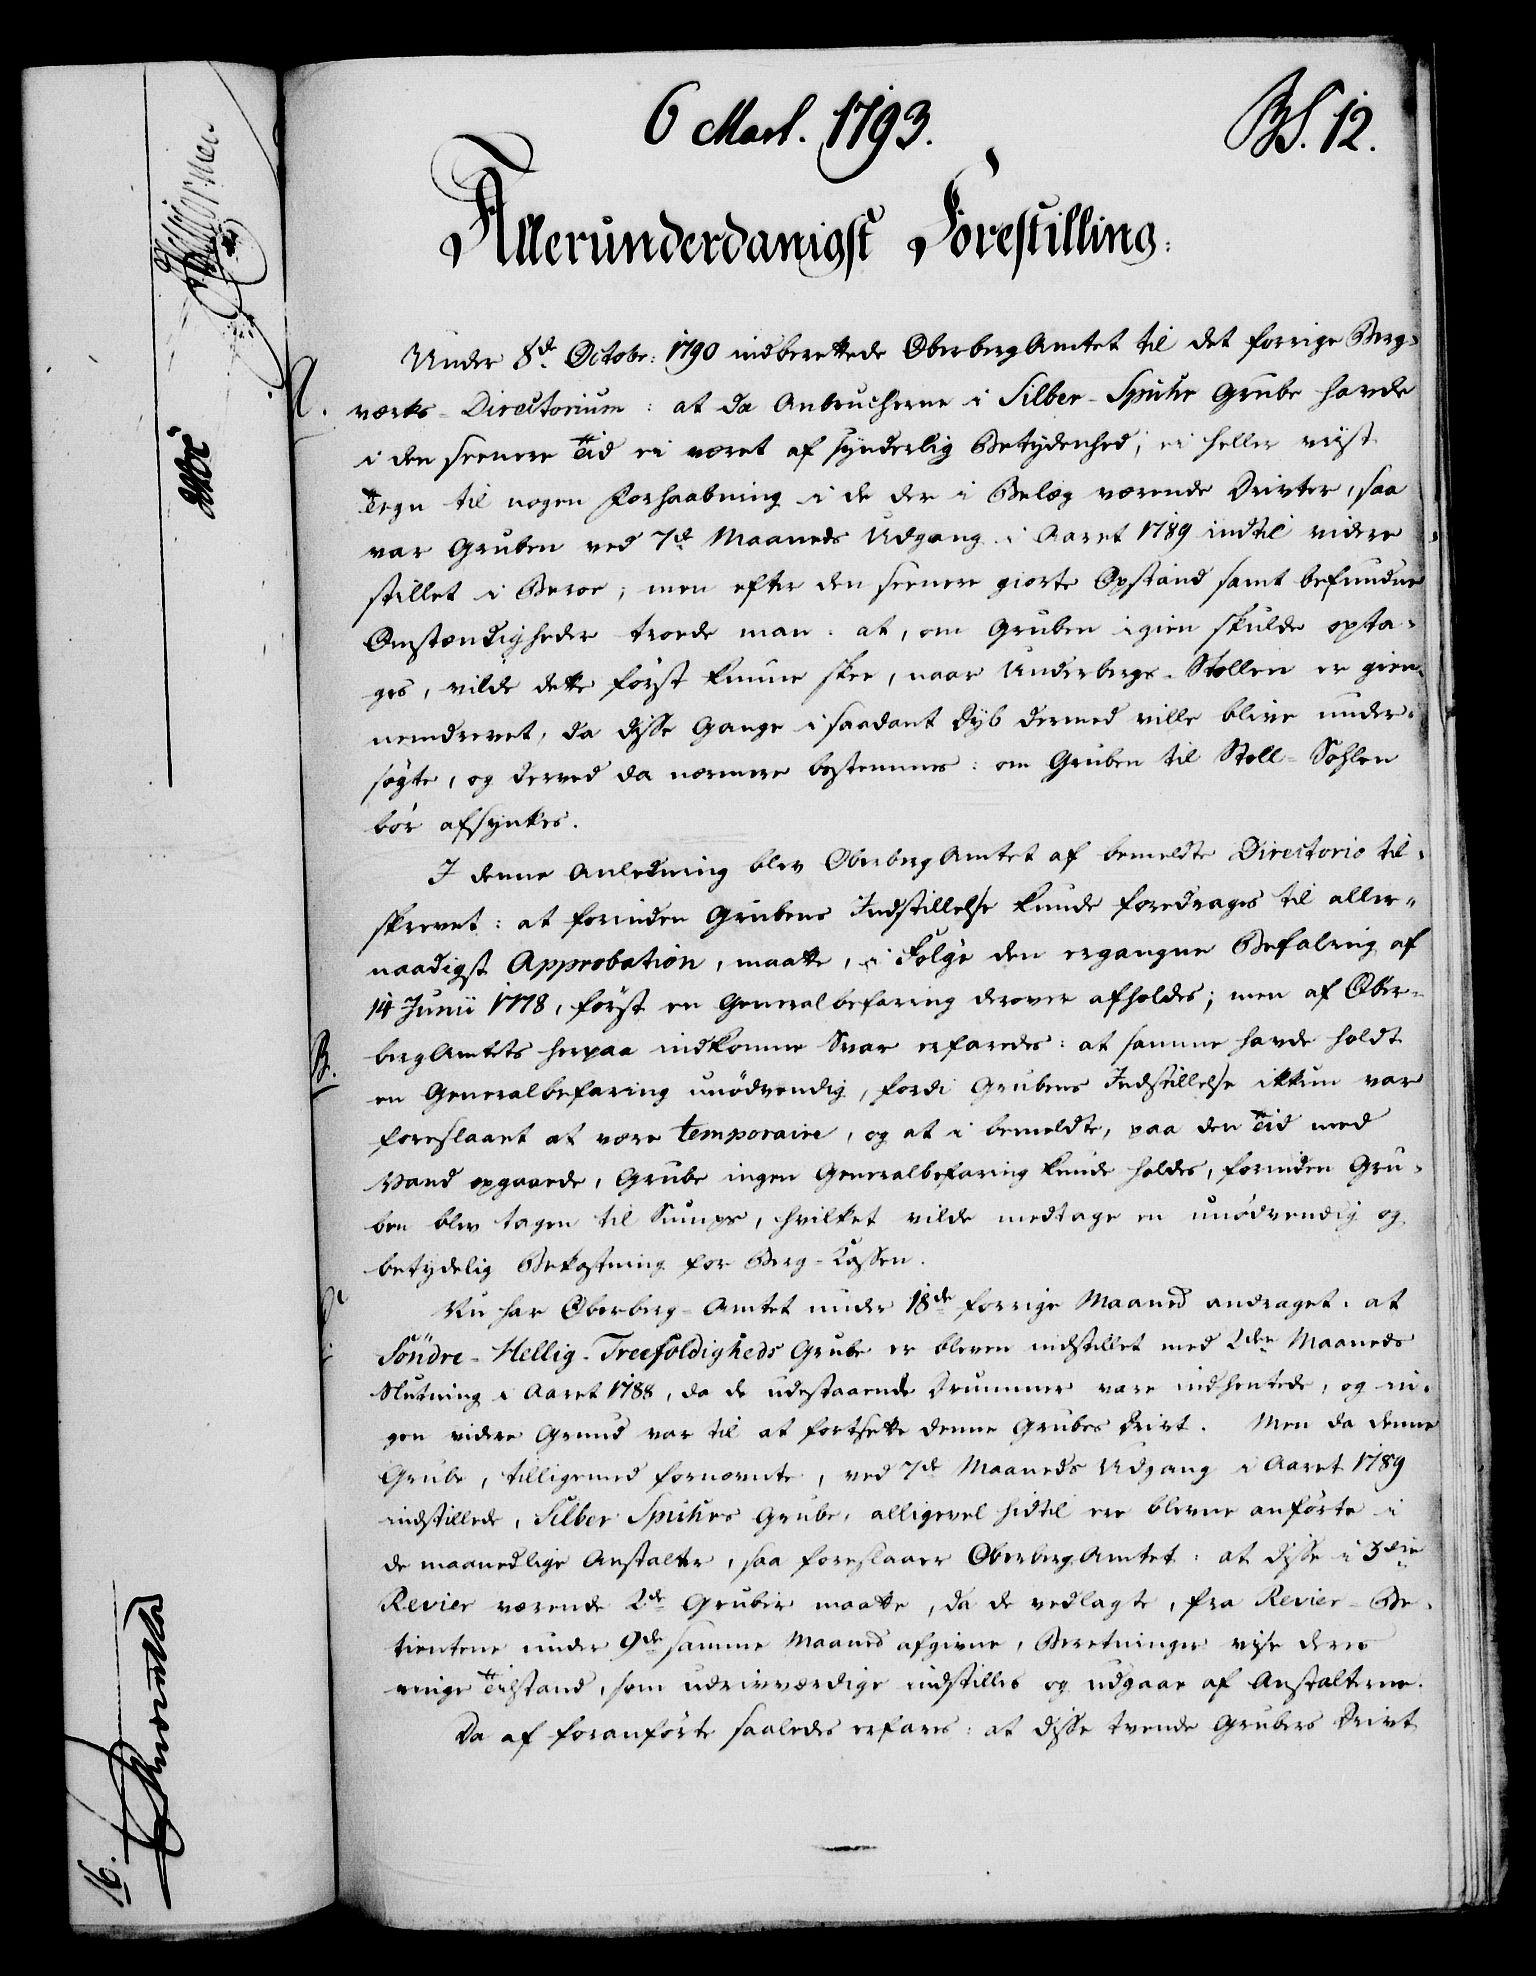 6 Mart. 1793.
BS. 12.
Allerunderdanigst Forestilling:
Under 8de Octobr: 1790 indberettede OberbergAmtet til det forrige Berg-
A.
værks-Directorium: at da Anbrucherne i Silber-Spuhr Grube havde
i den seenere Tid ei været af synderlig Betydenhed, ei heller viist
Tegn til nogen Forhaabning i de der i Belæg værende Drivter, saa
var Gruben ved 7de Maaneds Udgang i Aaret 1789 indtil videre
stillet i Beroe; men efter den seenere giorte Opstand samt befundne
Omstændigheder troede man: at, om Gruben igien skulde opta-
ges, vilde dette først kunne skee, naar Underbergs-Stollen er gien-
nemdrevet, da disse Gange i saadant Dyb dermed ville blive under-
søgte, og derved da nærmere bestemmes: om Gruben til Stoll-Sohlen
bør afsynkes.
I denne Anledning blev OberbergAmtet af bemeldte Directorio til-
skrevet: at forinden Grubens Indstillelse kunde foredrages til aller-
naadigst Approbation, maatte, i Følge den ergangne Befaling af
14 Junii 1778, først en Generalbefaring derover afholdes; men af Ober-
B.
bergAmtets herpaa indkomne Svar erfaredes: at samme havde holdt
en Generalbefaring unødvendig, fordi Grubens Indstillelse ikkun var
foreslaaet at være temporaire, og at i bemeldte, paa den Tid med
Vand opgaaede, Grube ingen Generalbefaring kunde holdes, forinden Gru-
ben blev tagen til Sumps, hvilket vilde medtage en unødvendig og
betydelig Bekostning for Berg-Cassen.
Nu har Oberberg-Amtet under 18de forrige Maaned andraget: at
Söndre-Hellig-Treefoldigheds Grube er bleven indstillet med 2den Maaneds
Slutning i Aaret 1788, da de udestaaende Drummer vare indhentede, og in-
gen videre Grund var til at fortsette denne Grubes Drivt. Men da denne
Grube, tilligemed fornævnte, ved 7de Maaneds Udgang i Aaret 1789
indstillede, Silber Spuhrs Grube, alligevel hidtil ere blevne anførte i
de maanedlige Anstalter, saa foreslaaer OberbergAmtet: at disse i 3die
Revier værende 2de Gruber maatte, da de vedlagte, fra Revier-Be-
tientene under 9de samme Maaned afgivne, Beretninger vise deres
ringe Tilstand, som udrivværdige indstilles og udgaae af Anstalterne.
Da af foranførte saaledes erfares: at disse tvende Grubers Drivt
16.